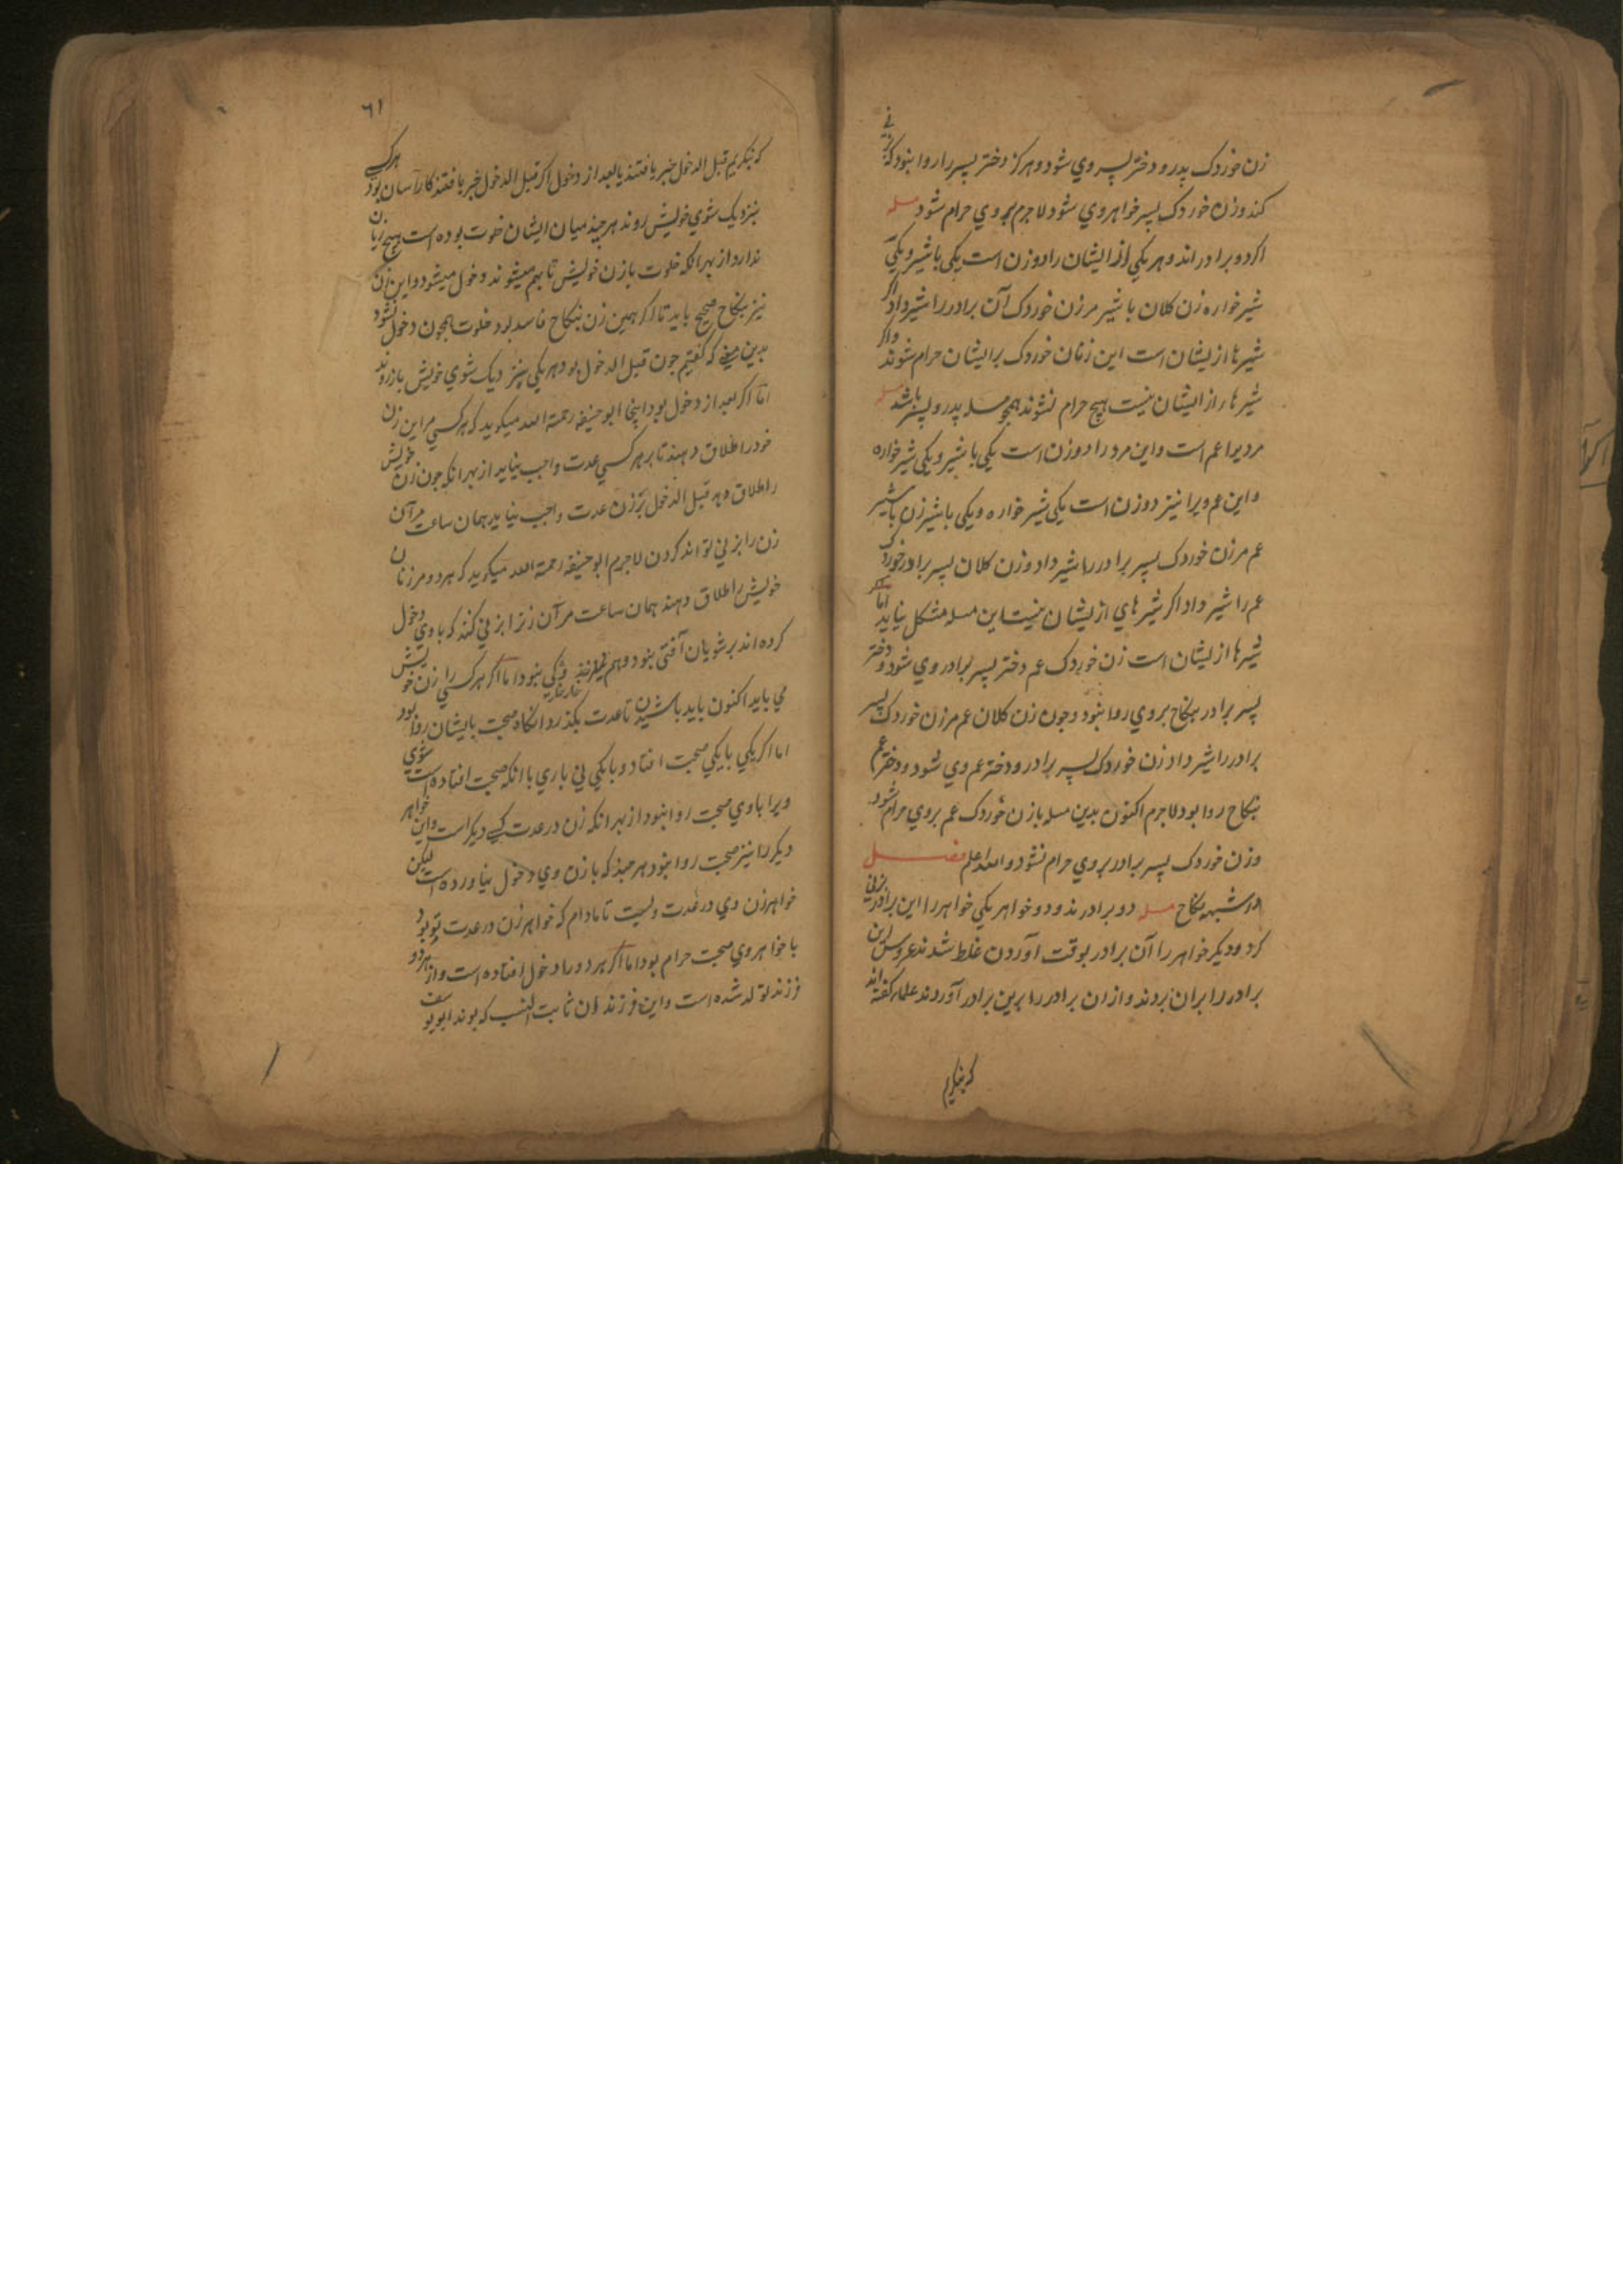 زن خوردک پدر و دختر پسر وي شود و هرکز دختر پسر را روا نبود که
کند و زن خوردک پسر خواهر وي شود لاجرم بروي حرام شود مسله
اکر دو برادر اند و هر یکي از ایشان را دو زن است یکي با شیر و یکي
شیر خواره زن کلان با شیر مر زن خوردک آن برادر را شیر داد اکر
شیرها از یشان است این زنان خوردک بر ایشان حرام شوند و اکر
شیرها از ایشان نیست هیچ حرام نشوند همچو مسله پدر و پسر باشد مسله
مردیرا عم است و این مرد را دو زن است یکي با شیر و یکي شیر خواره
و این عم ویرا نیز دو زن است یکي شیر خواره و یکي با شیر زن با شیر
عم مر زن خوردک پسر برادر را شیر داد و زن کلان پسر برادر خوردک
عم را شیر داد اکر شیر هاي از یشان نیست این مسله مشکل نیاید اما اکر
شیرها از یشان است زن خوردک عم دختر پسر برادر وي شود و دختر
پسر برادر بنکاح بروي روا نبود و چون زن کلان عم مر زن خوردک پسر
برادر را شیر داد زن خوردک پسر برادر و دختر عم وي شود و دختر عم
بنکاح روا بود لاجرم اکنون بدین مسله باز زن خوردک عم بروي حرام شود
و زن خوردک پسر برادر بروي حرام نشود والله اعلم فصل
در شبهه نکاح مسله دو برادرند و دو خواهر یکي خواهر را این برادر بزني
کرد و دیکر خواهر را آن برادر بوقت آوردن غلط شدند عروس این
برادر را بران بردند و از ان برادر را برین برادر آوردند علما کفته اند
که بنکریم
۶۱
که بنکریم قبل الدخول خبر یافتند یا بعد از دخول اکر قبل الدخول خبر یافتند کار آسان بود هرکسي
بنزدیک شوي خویش روند هر چند میان ایشان خلوت بوده است هیچ زیان
ندارد از بهر انکه خلوت با زن خویش تا بهم میشوند دخول میشود و این زن
نیز بنکاح صحیح باید تا اکر همین زن بنکاح فاسد بود خلوت همچون دخول نشود
بدین معني که کفتیم چون قبل الدخول بود هر یکي بنزدیک شوي خویش باز روند
اما اکر بعد از دخول بود اینجا ابو حنیفه رحمة الله میکوید که هر کسي مر این زن
خود را طلاق دهند تا بر هر کسي عدت واجب نیاید از بهر انکه چون زن خویش
را طلاق دهد قبل الدخول بر زن عدت واجب نیاید همان ساعت مر آن
زن را بزني تواند کردن لاجرم ابو حنیفه رحمة الله میکوید که هر دو مر زنان
خویش را طلاق دهند همان ساعت مر آن زنرا بزني کنند که با وي دخول
کرده اند بر شویان آفتي نبود و هم غلیظ رشکي نبود اما اکر هر کسي را زن خویش
مي باید اکنون باید باشیدن تا عدت بکذرد انکاه صحبت با یشان روا بود
اما اکر یکي با یکي صحبت افتاد و با یکي ني باري با انکه صحبت افتاده است شوي
ویرا با وي صحبت روا نبود از بهر انکه زن در عدت کسي دیکر است و این خواهر
دیکر را نیز صحبت روا نبود هر چند که با زن وي دخول نیاورده است لیکن
خواهر زن وي در عدت ویست تا مادام که خواهر زن در عدت تو بود
با خواهر وي صحبت حرام بود اما اکر هر دو را دخول افتاده است و از هر دو
فرزند تولد شده است و این فرزندان ثابت النسب که بوند ابو یوسف